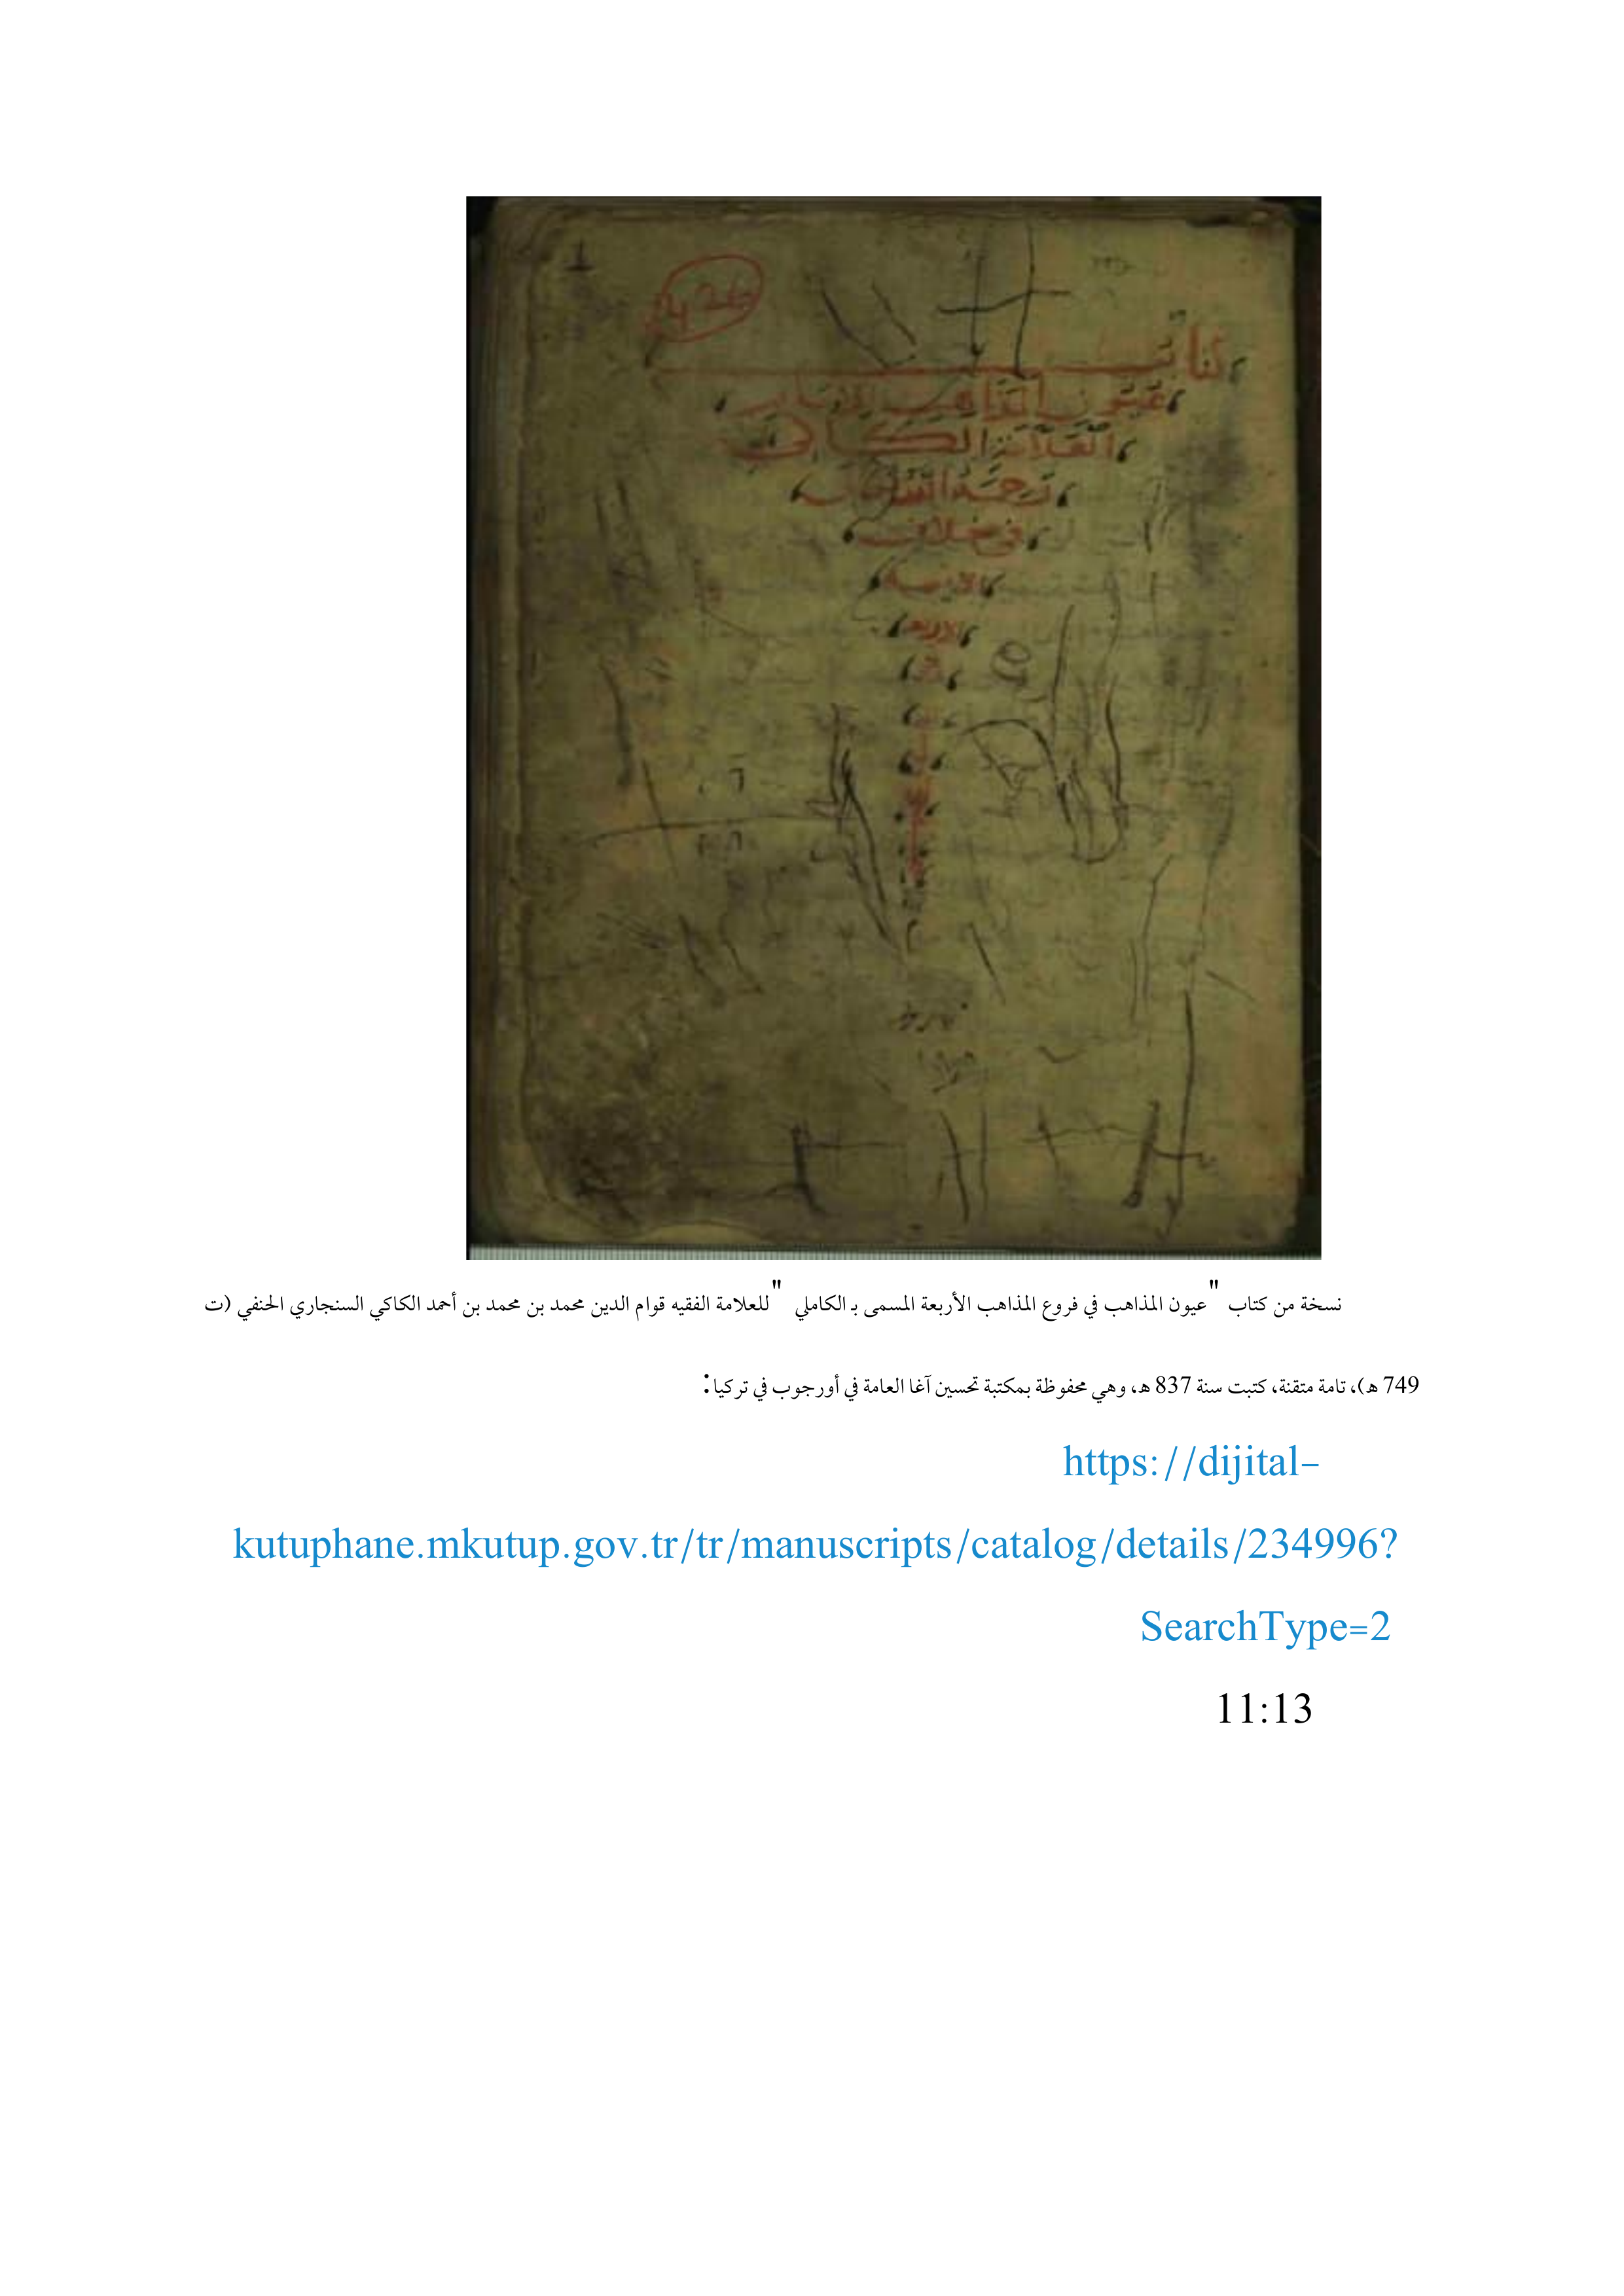 426
كتاب
عيون المذاهب
العلامة الكاكي
رحمه الله تعالى
في خلاف
الاربعه
نسخة من كتاب "عيون المذاهب في فروع المذاهب الأربعة المسمى بـ الكاملي" للعلامة الفقيه قوام الدين محمد بن محمد بن أحمد الكاكي السنجاري الحنفي (ت
749 هـ)، تامة متقنة، كتبت سنة 837 هـ، وهي محفوظة بمكتبة تحسين آغا العامة في أورجوب في تركيا:
https://dijital-
kutuphane.mkutup.gov.tr/tr/manuscripts/catalog/details/234996?
SearchType=2
11:13